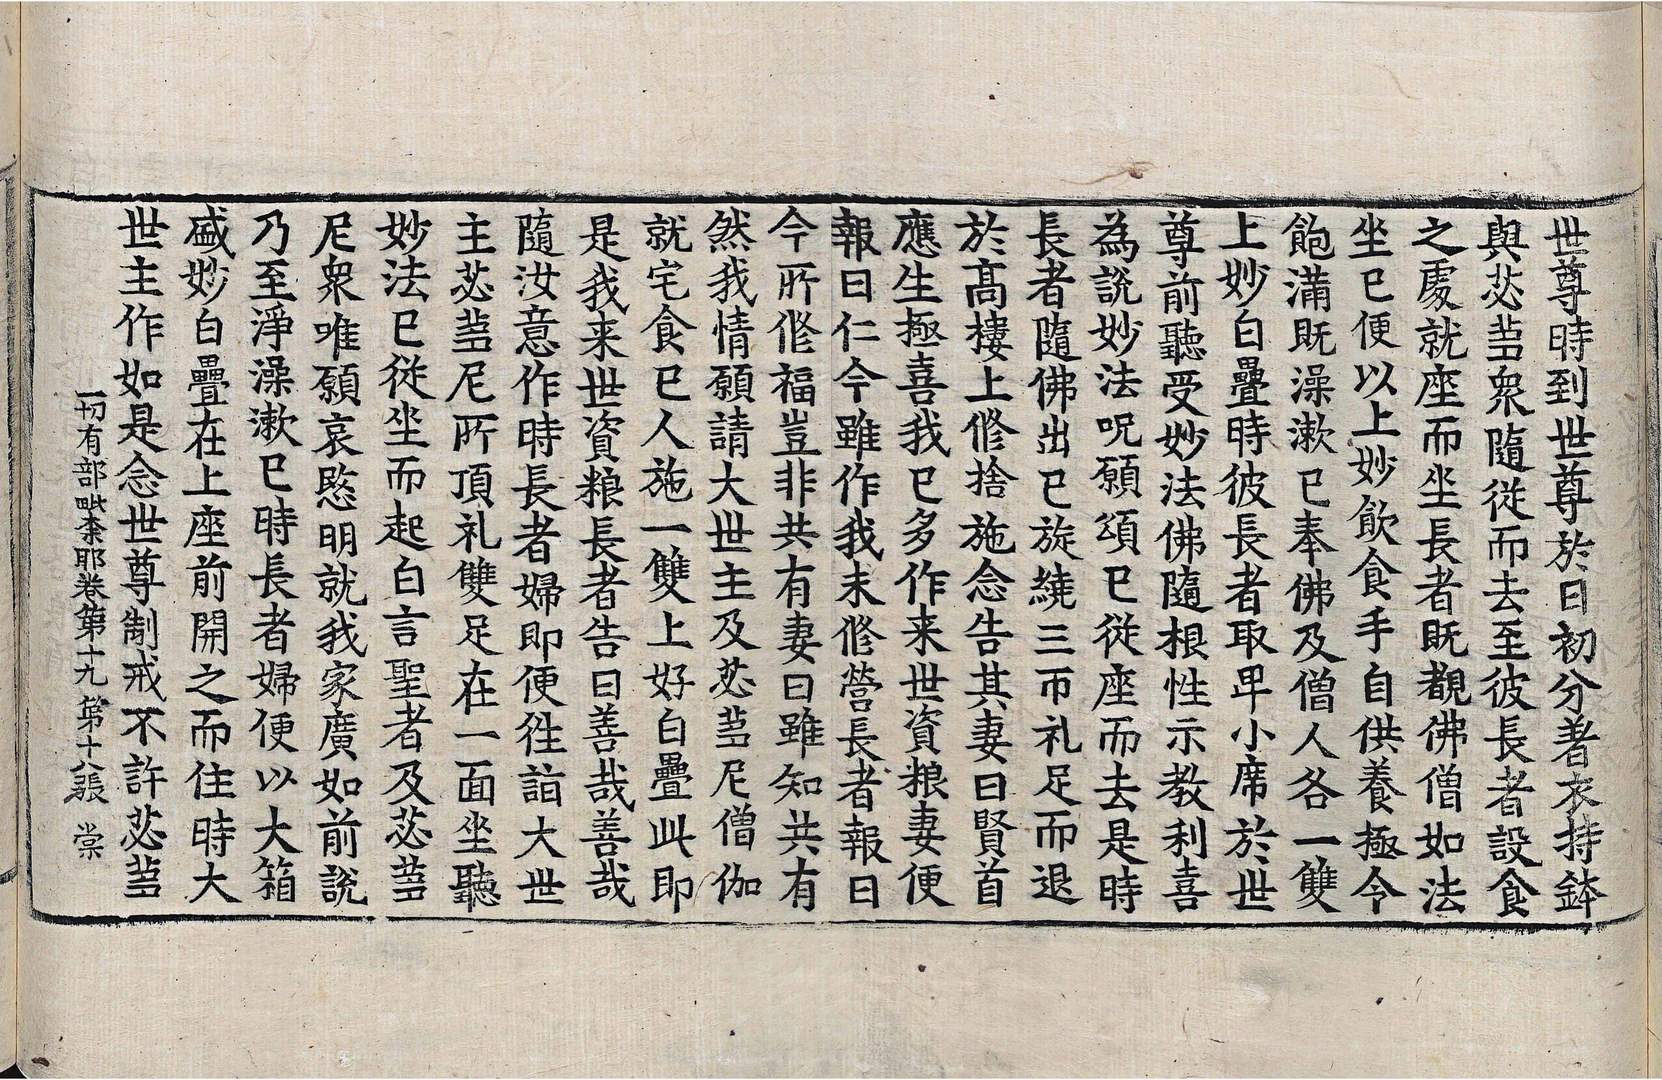 世尊時到世尊於日初分著衣持鉢
與苾蒭衆隨從而去至彼長者設食
之處就座而坐長者既覩佛僧如法
坐已便以上妙飲食手自供養極令
飽滿既澡漱已奉佛及僧人各一雙
上妙白疊時彼長者取卑小席於世
尊前聽受妙法佛隨根性示教利喜
為說妙法呪願頌已從座而去是時
長者隨佛出已旋繞三帀礼足而退
於高樓上修捨施念告其妻曰賢首
應生極喜我已多作来世資粮妻便
報曰仁今雖作我未修營長者報曰
今所修福豈非共有妻曰雖知共有
然我情願請大世主及苾蒭尼僧伽
就宅食已人施一雙上好白疊此即
是我来世資粮長者告曰善哉善哉
隨汝意作時長者婦即便往詣大世
主苾蒭尼所頂礼雙足在一面坐聽
妙法已從坐而起白言聖者及苾蒭
尼衆唯願哀愍明就我家廣如前說
乃至淨澡漱已時長者婦便以大箱
盛妙白疊在上座前開之而住時大
世主作如是念世尊制戒不許苾蒭
一切有部毗柰耶卷第十九 第十八張 棠